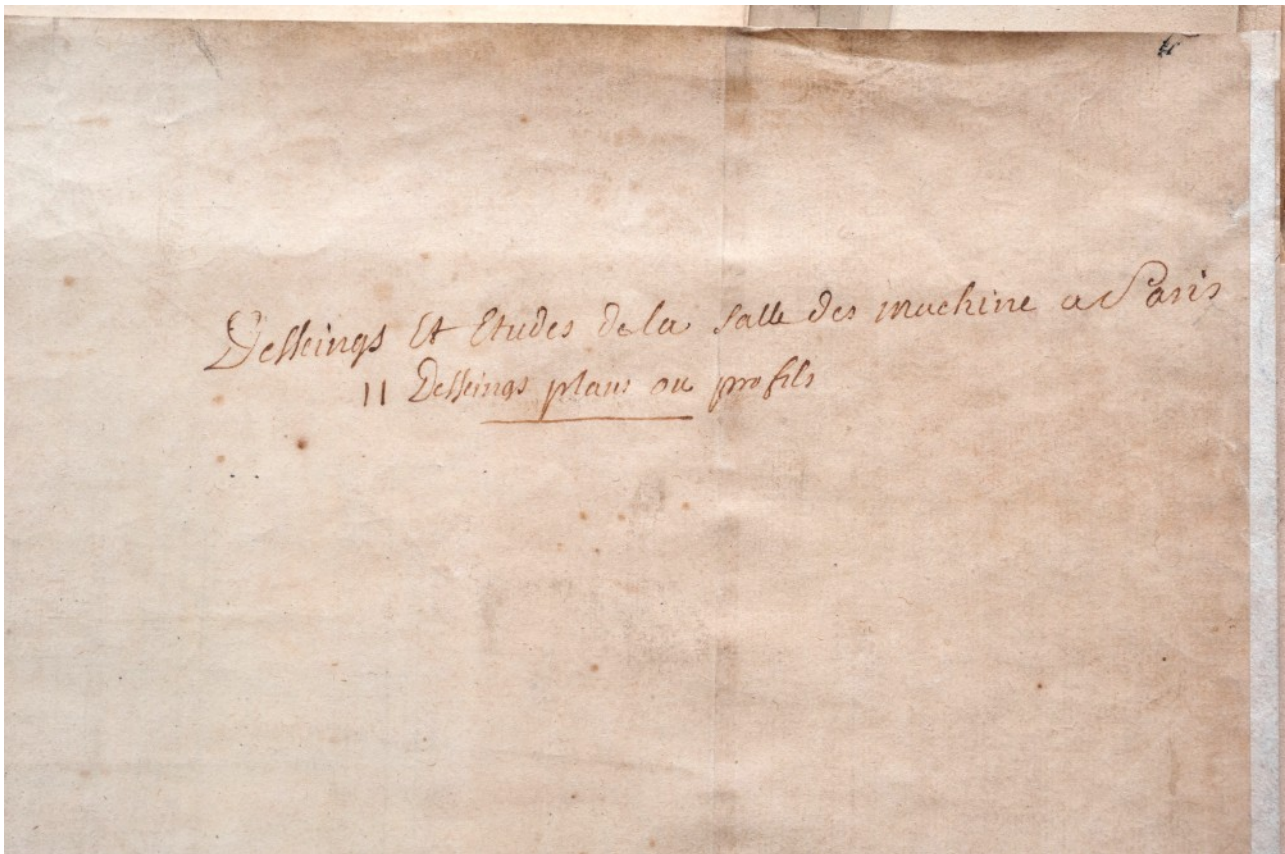 Desseings Et Etudes de la Salle des machine a Paris
11 Desseings plans ou profils